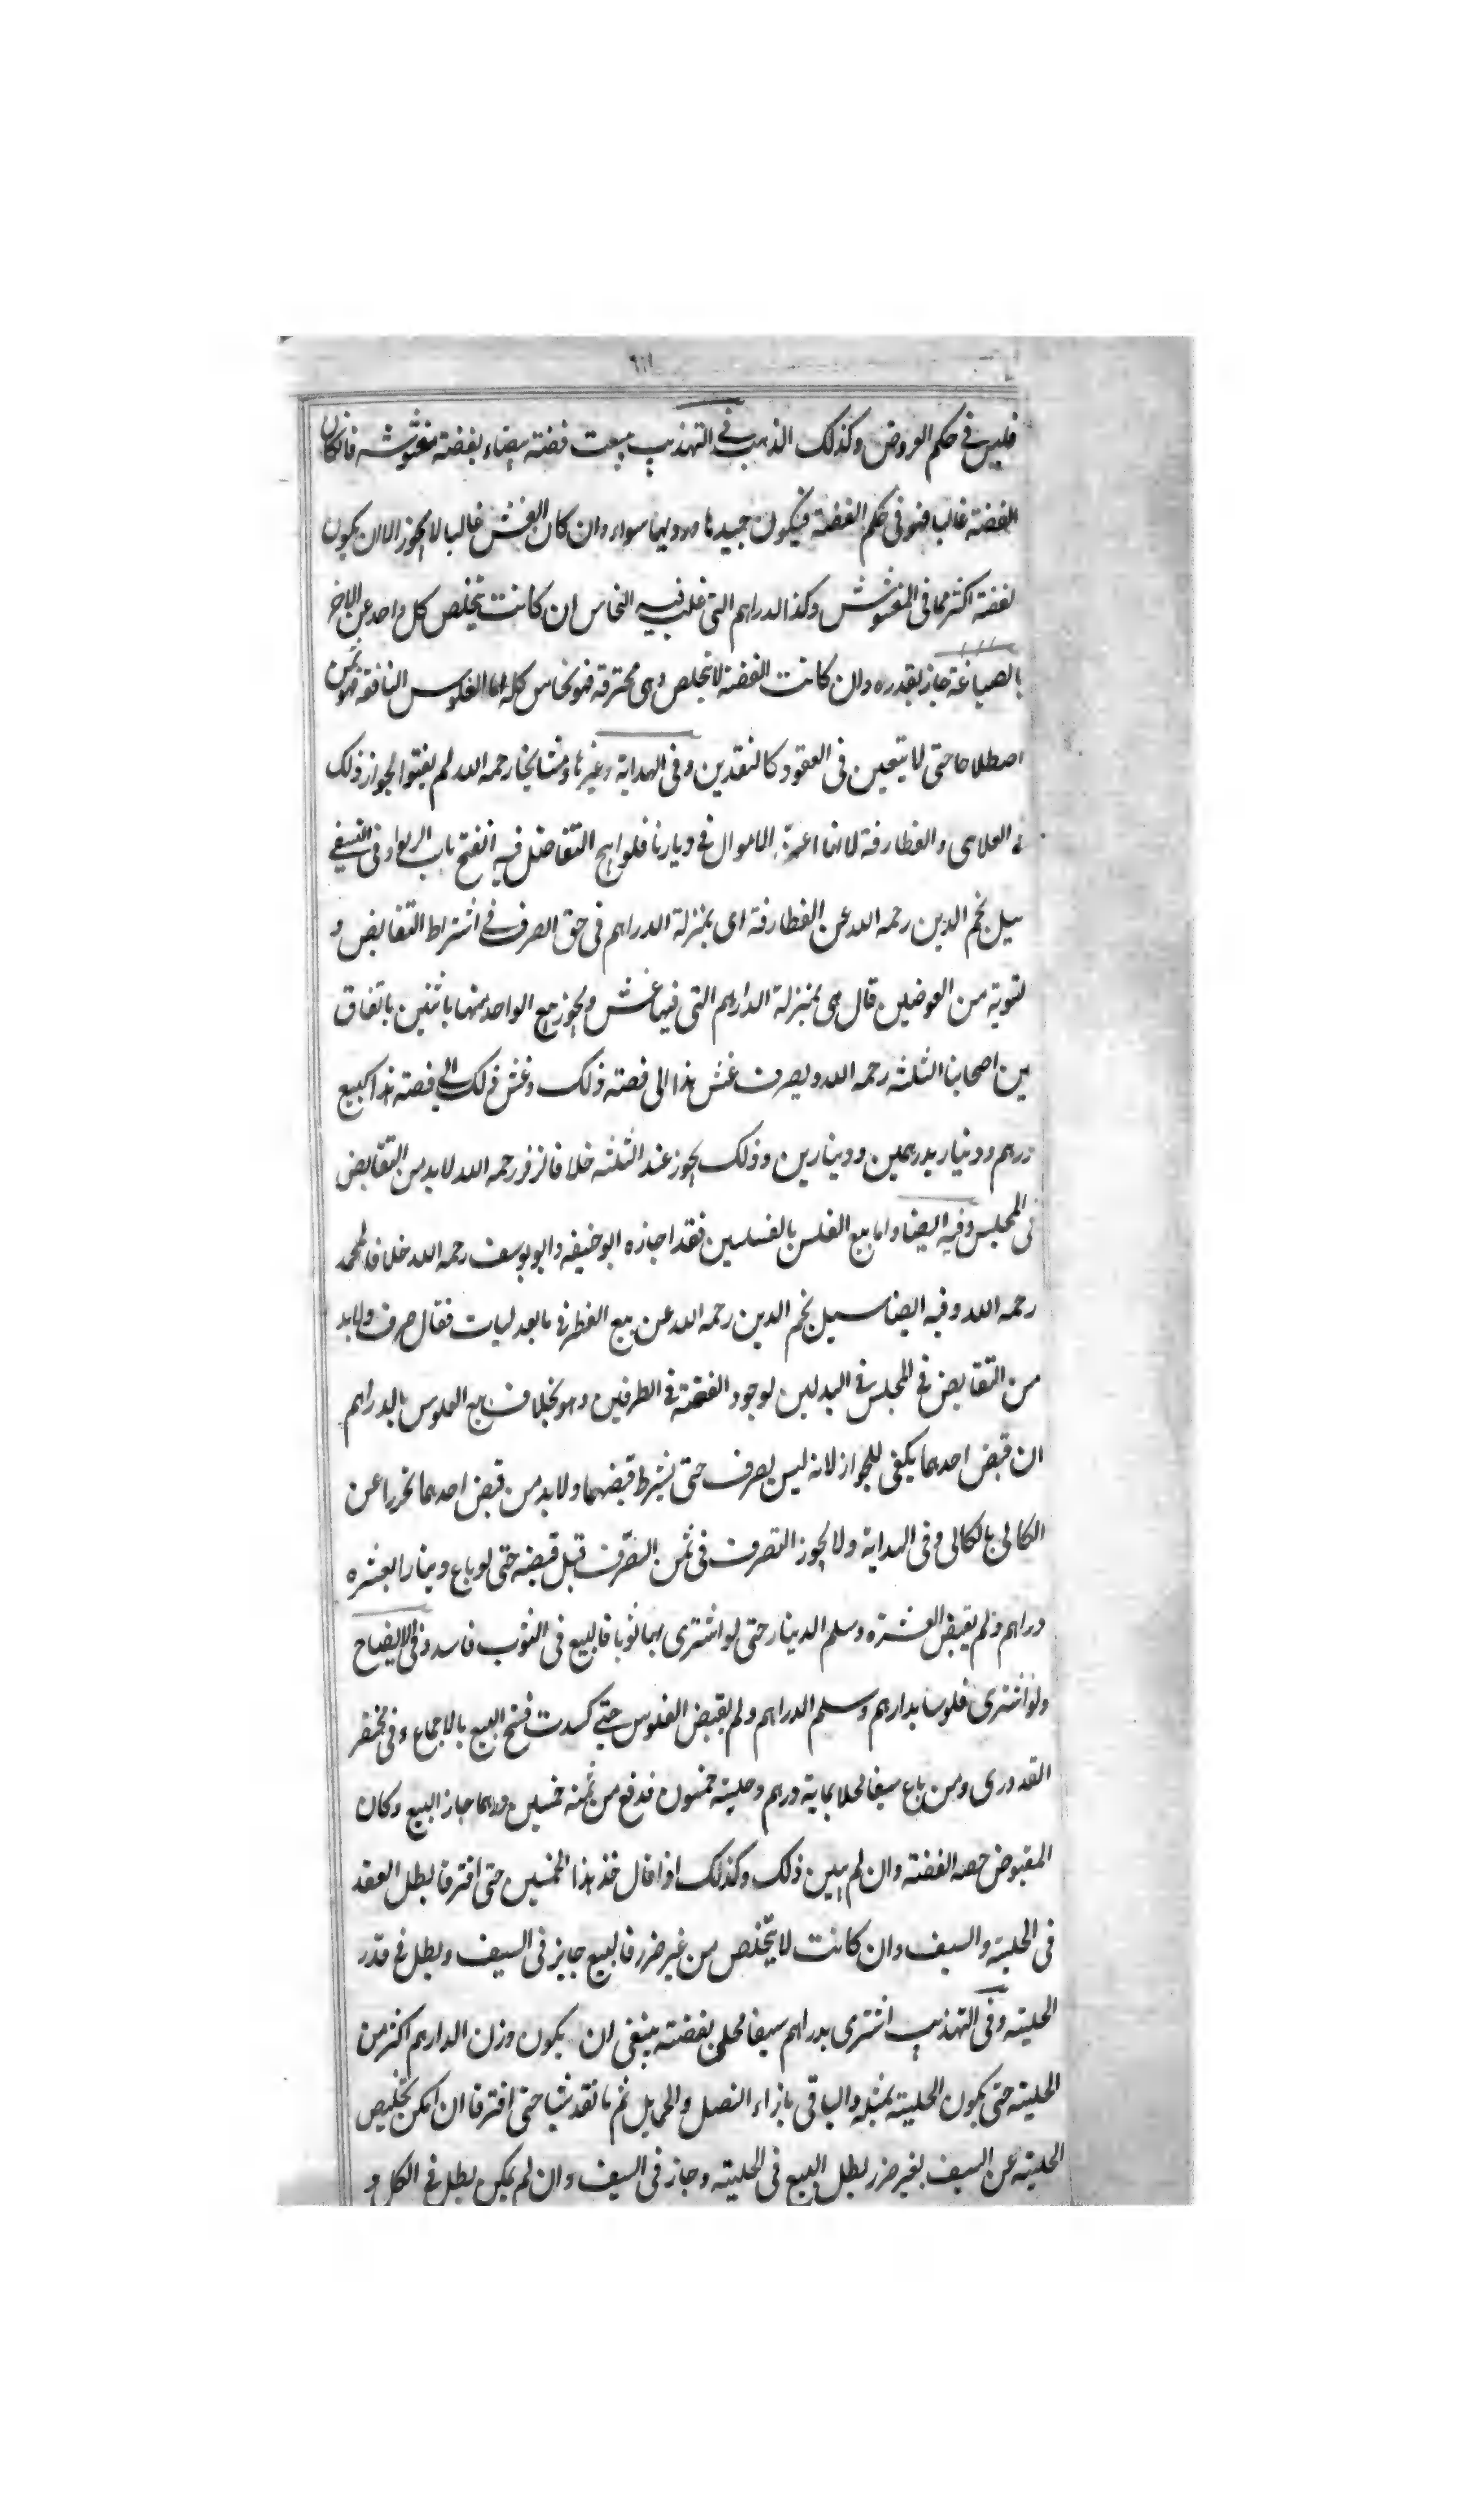 ٦١١
فليس في حكم العروض وكذلك الذهب في التهذيب بيعت فضة بيضاء بفضة مغشوشه فان كان
الفضة غالبا فهو في حكم الفضة فيكون جيدها ورديها سواء وان كان الغش غالبا لا يجوز الا ان يكون
لفضة اكثر مما في المغشوش وكذا الدراهم التي غلب فيه النحاس ان كانت يتخلص كل واحد عن الاخر
بالصياغة جاز بقدره وان كانت الفضة لا يتخلص وهي محترقة فهو نحاس كله اما الفلوس النافقة فهو ثمن
اصطلاحا حتى لا يتعين في العقود كالنقدين وفي الهداية وغيرها ومشايخنا رحمه الله لم يفتوا بجواز ذلك
في العدالى والغطارفة لانها اعز الاموال في ديارنا فلو ابيح التفاضل فيه انفتح باب الربوا وفي النسفي
سيل نجم الدين رحمه الله عن الغطارفة اى بمنزلة الدراهم في حق الصرف في اشتراط التقابض و
لتسوية من العوضين قال هي بمنزلة الدراهم التي فيها غش ويجوز بيع الواحد منها باثنين باتفاق
بين اصحابنا الثلثه رحمه الله ويصرف غش هذا الى فضته ذلك وغش ذلك الى فضته هذا كبيع
درهم ودينار بدرهمين ودينارين وذلك يجوز عند الثلثه خلافا لزفر رحمه الله لابد من التقابض
في المجلس وفيه ايضا واما بيع الفلس بالفلسين فقد اجازه ابو حنيفه وابو يوسف رحمه الله خلافا لمحمد
رحمه الله وفيه ايضا سيل نجم الدين رحمه الله عن بيع الغطرفي بالعدليات فقال صرف ولابد
من التقابض في المجلس في البدلين لوجود الفضة في الطرفين وهو بخلاف بيع الفلوس بالدراهم
ان قبض احدهما يكفي للجواز لانه ليس بصرف حتى يشرط قبضهما ولابد من قبض احدهما تحرزا عن
الكالى بالكالى وفي الهداية ولا يجوز التصرف في ثمن الصرف قبل قبضه حتى لو باع دينارا بعشره
دراهم ولم يقبض العشره وسلم الدينار حتى لو اشترى بها ثوبا فالبيع في الثوب فاسد وفي الايضاح
ولو اشترى فلوسا بدارهم وسلم الدراهم ولم يقبض الفلوس حتى كسدت فسخ البيع بالاجماع وفي مختصر
القدورى ومن باع سيفا محلا بماية درهم وحليته خمسون فدفع من ثمنه خمسين درهما جاز البيع وكان
المقبوض حصه الفضة وان لم يبين ذلك وكذلك اذا قال خذ هذا الخمسين حتى افترقا بطل العقد
في الحلية والسيف وان كانت لا يتخلص من غير ضرر فالبيع جايز في السيف وبطل في قدر
الحليته وفي التهذيب اشترى بدراهم سيفا محلى بفضته ينبغي ان يكون وزن الدارهم اكثر من
الحليته حتى يكون الحليته بمثله والباقي بازاء النصل والحمايل ثم ما نقد شيا حتى افترقا ان امكن تخليص
الحليته عن السيف بغير ضرر بطل البيع في الحليته وجاز في السيف وان لم يمكن بطل في الكل و